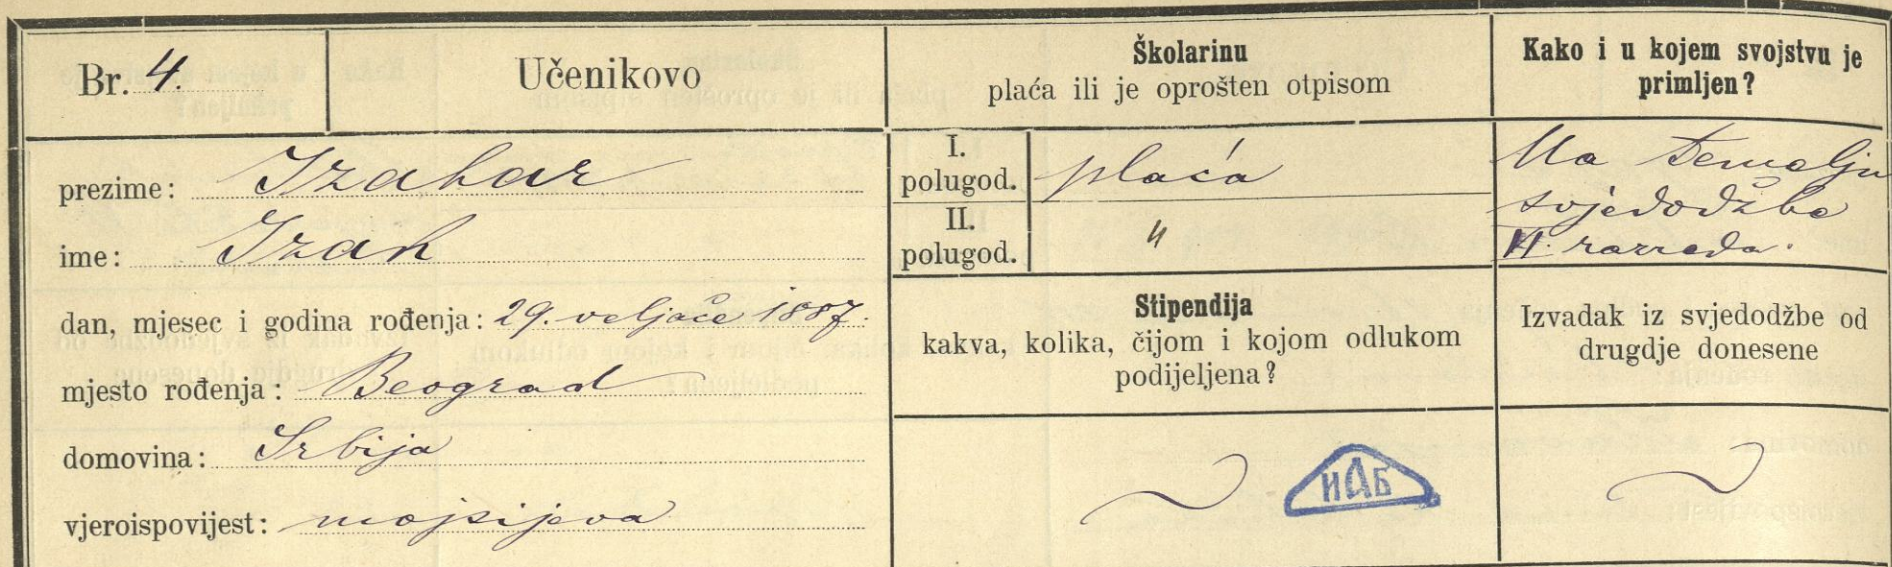 Br. 4.
Učenikovo
prezime: Izahar
ime: Izak
dan, mjesec i godina rođenja: 29. veljače 1887.
mjesto rođenja: Beograd
domovina: Srbija
vjeroispovijest: mojsijeva
Školarinu
plaća ili je oprošten otpisom
I.
polugod. plaća
II.
polugod. "
Stipendija
kakva, kolika, čijom i kojom odlukom
podijeljena?
ИАБ
Kako i u kojem svojstvu je
primljen?
Na temelju
svjedodžbe
razreda.
Izvadak iz svjedodžbe od
drugdje donesene